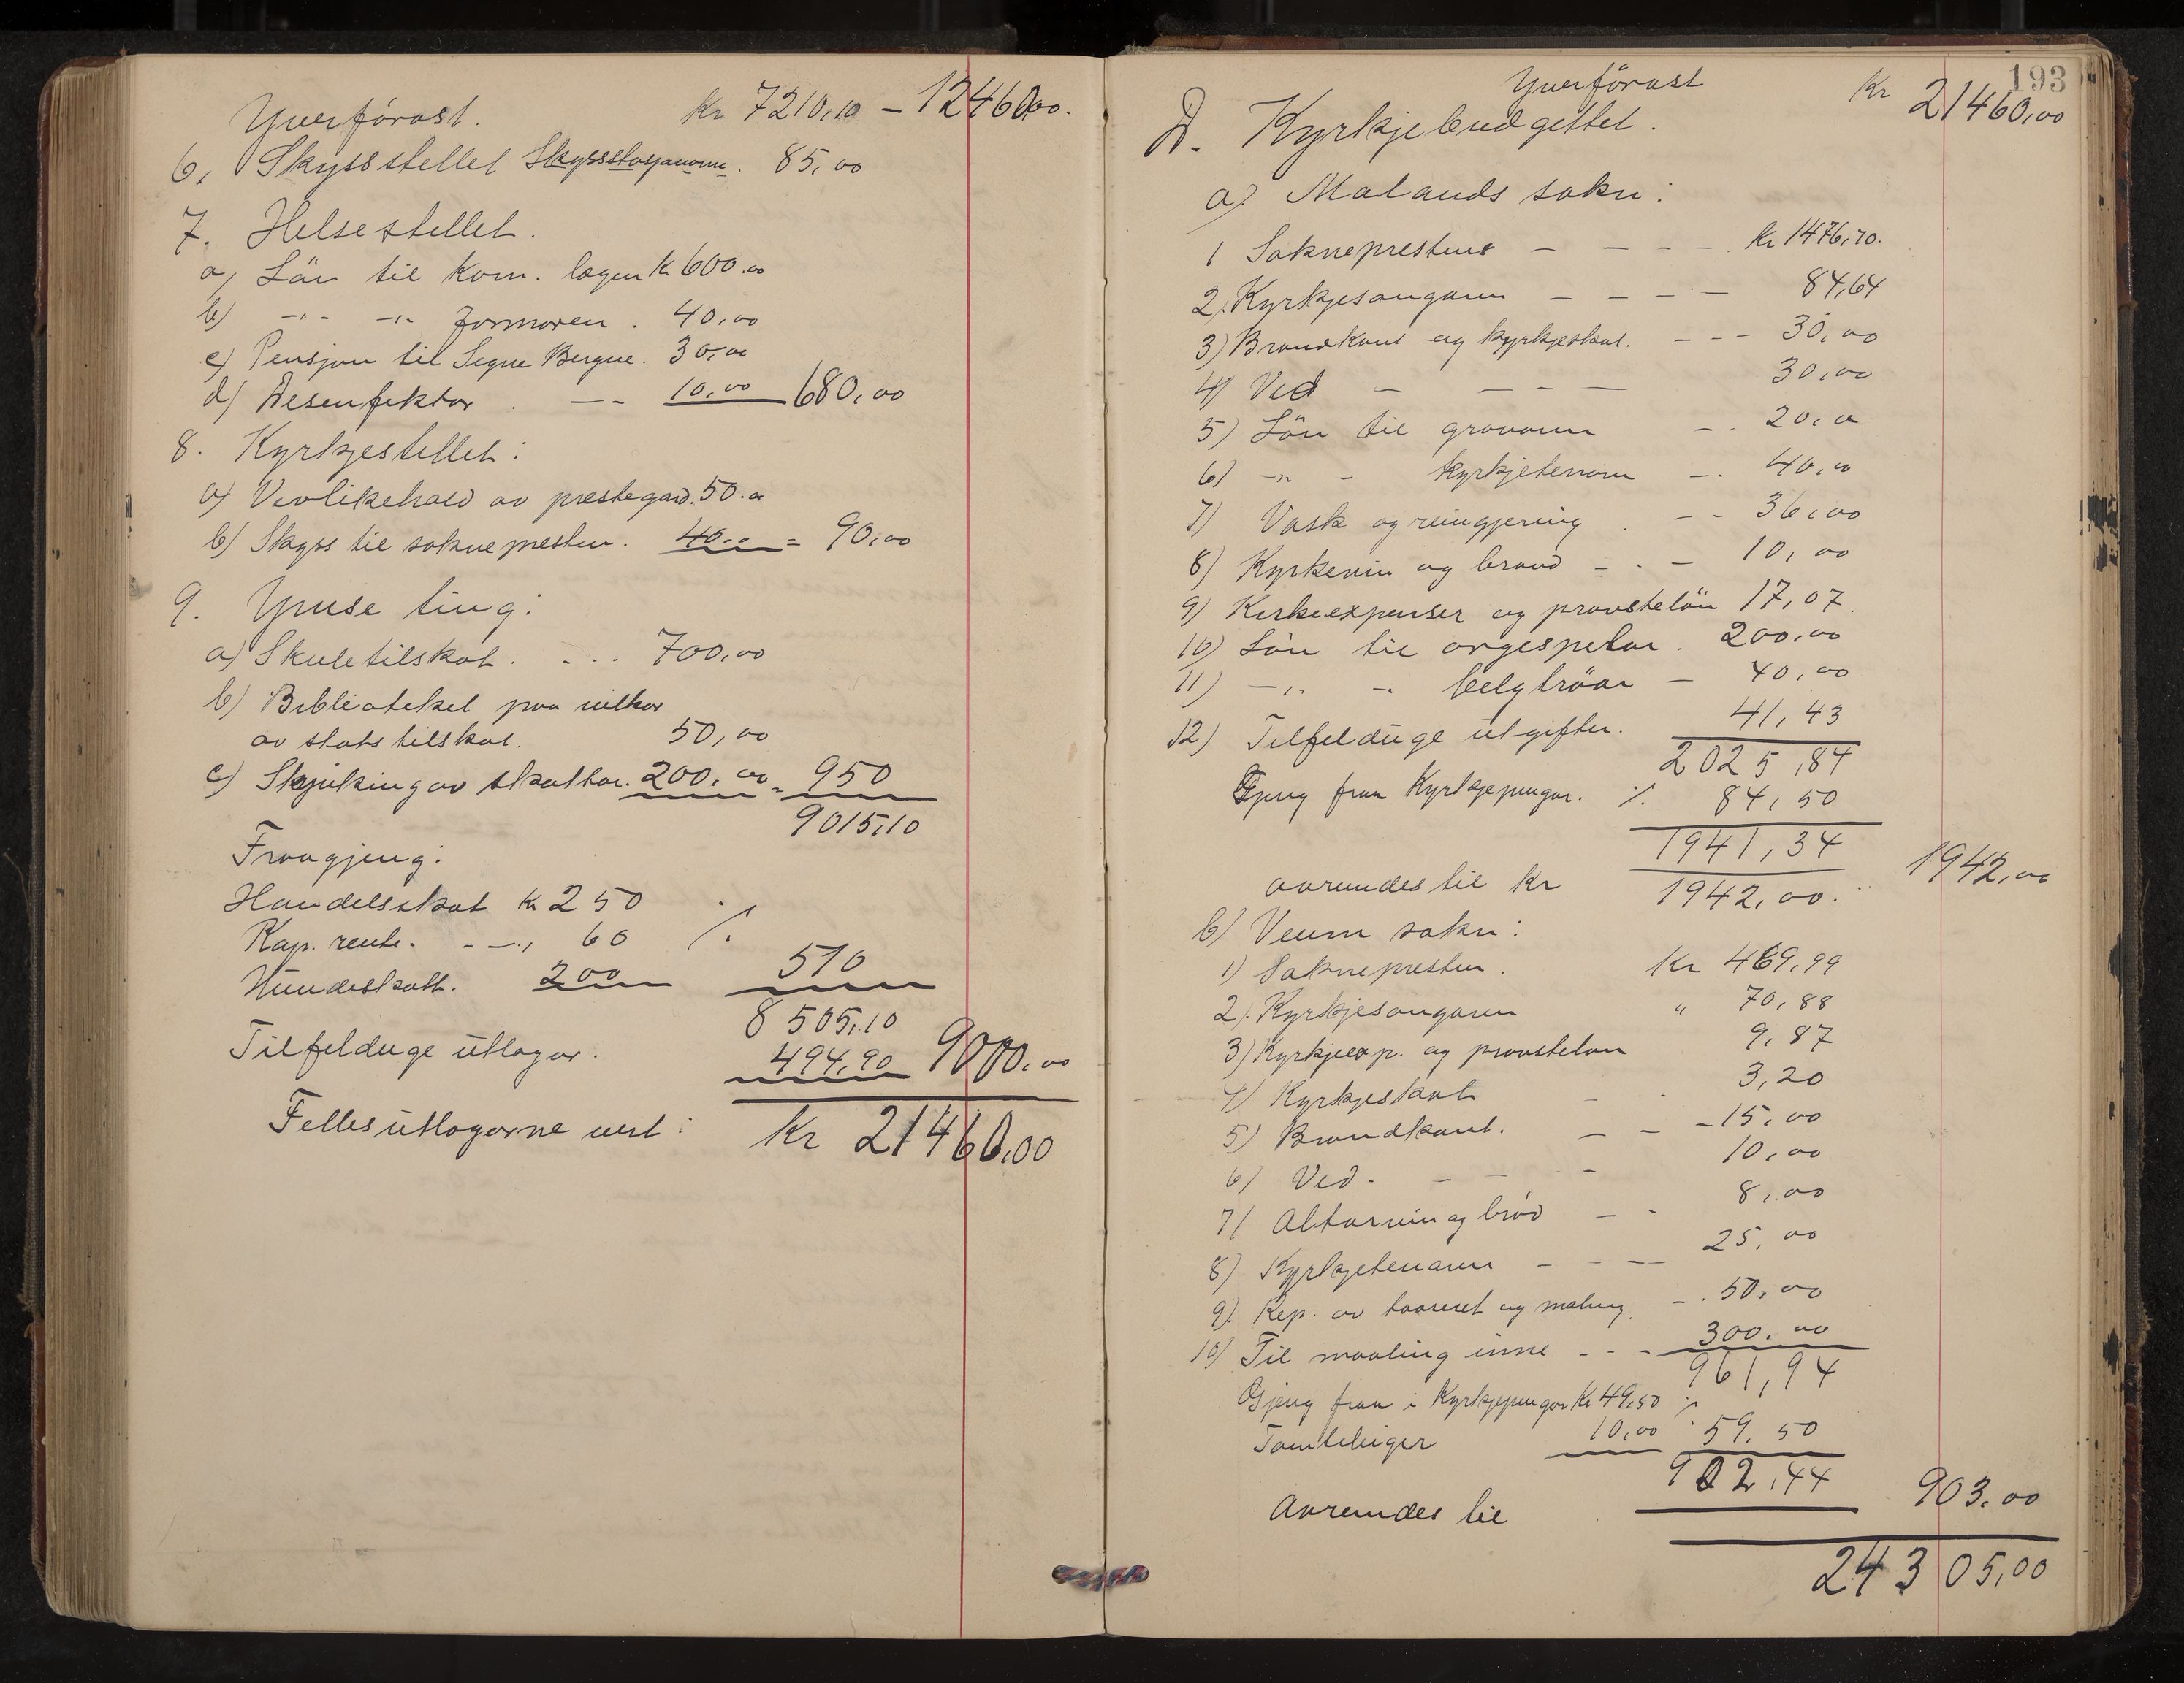 Yverförast. Kr 7210,10 – 12460,00.
6, Skyssstellet Skyssstasjonerne. 85,00
7. Helsestellet.
a, Lön til kom. lægen Kr 600.00
b) -"- -"- Jormoren. 40,00
c) Pensjon til Signe Bergne. 30,00
d) Desenfektor . — - 10,00 680,00
8. Kyrkjestellet:
a) Vevlikehald av prestegard. 50.00
b) Skyss til soknepresten. 40.00 = 90,00
9. Ymse ting:
a) Skuletilskot. - . . 700,00
b) Biblioteket paa vilkor
av statstilskot. 50,00
c) Skrinking av skattar. 200,00 = 950
9015,10
Fraagjeng:
Handelsskat Kr 250
Kap. rente. - —., 60 ./.
Hundeskatt. 200 510
8505,10
Tilfelduge utlogor. 494,90 9000.00
Felles utlogorne vert: Kr 21460,00
193
Yverförast Kr 21460,00
D. Kyrkjebudgettet.
a) Molands sokn:
1 Soknepresten — - - - Kr 1476,70.
2. Kyrkjesongaren — - - — 84,64
3) Brandkont og kyrkjeskat. - - - 30,00
4) Ved — - - — 30,00
5) Lön til gravaren -. 20,00
6) -"- - kyrkjetenaren -. 40,00
7) Vask og reingjering . - - 36,00
8) Kyrkevin og braud - . - 10,00
9) Kirkeexpenser og provstelön 17,07
10) Lön til orgespelar. 200,00
11) -"- -. belgtröar - 40,00
12) Tilfelduge utgifter. 41,43
2025,84
Gjeng fraa Kyrkjepengar. ./. 84,50
1941,34
avrundes til Kr 1942,00. 1942,00
b) Veum sokn:
1) Soknepresten. Kr 469,99
2). Kyrkjesongaren " 70,88
3) Kyrkjeexp. og provstelön 9,87
4) Kyrkjeskatt - - 3,20
5) Brandkont. - - - 15,00
6) Ved. - - 10,00
7) Altarvin og bröd - - 8,00
8) Kyrkjetenaren - - — 25,00
9). Rep. av taarnet og maling. -. 50,00
10) Til maaling inne - - - 300.00
961,94
Gjeng fraa i Kyrkjepengar Kr 49,50 ./.
Tomteleiger 10,00 59.50
902,44
Avrundes til 903.00
24305,00